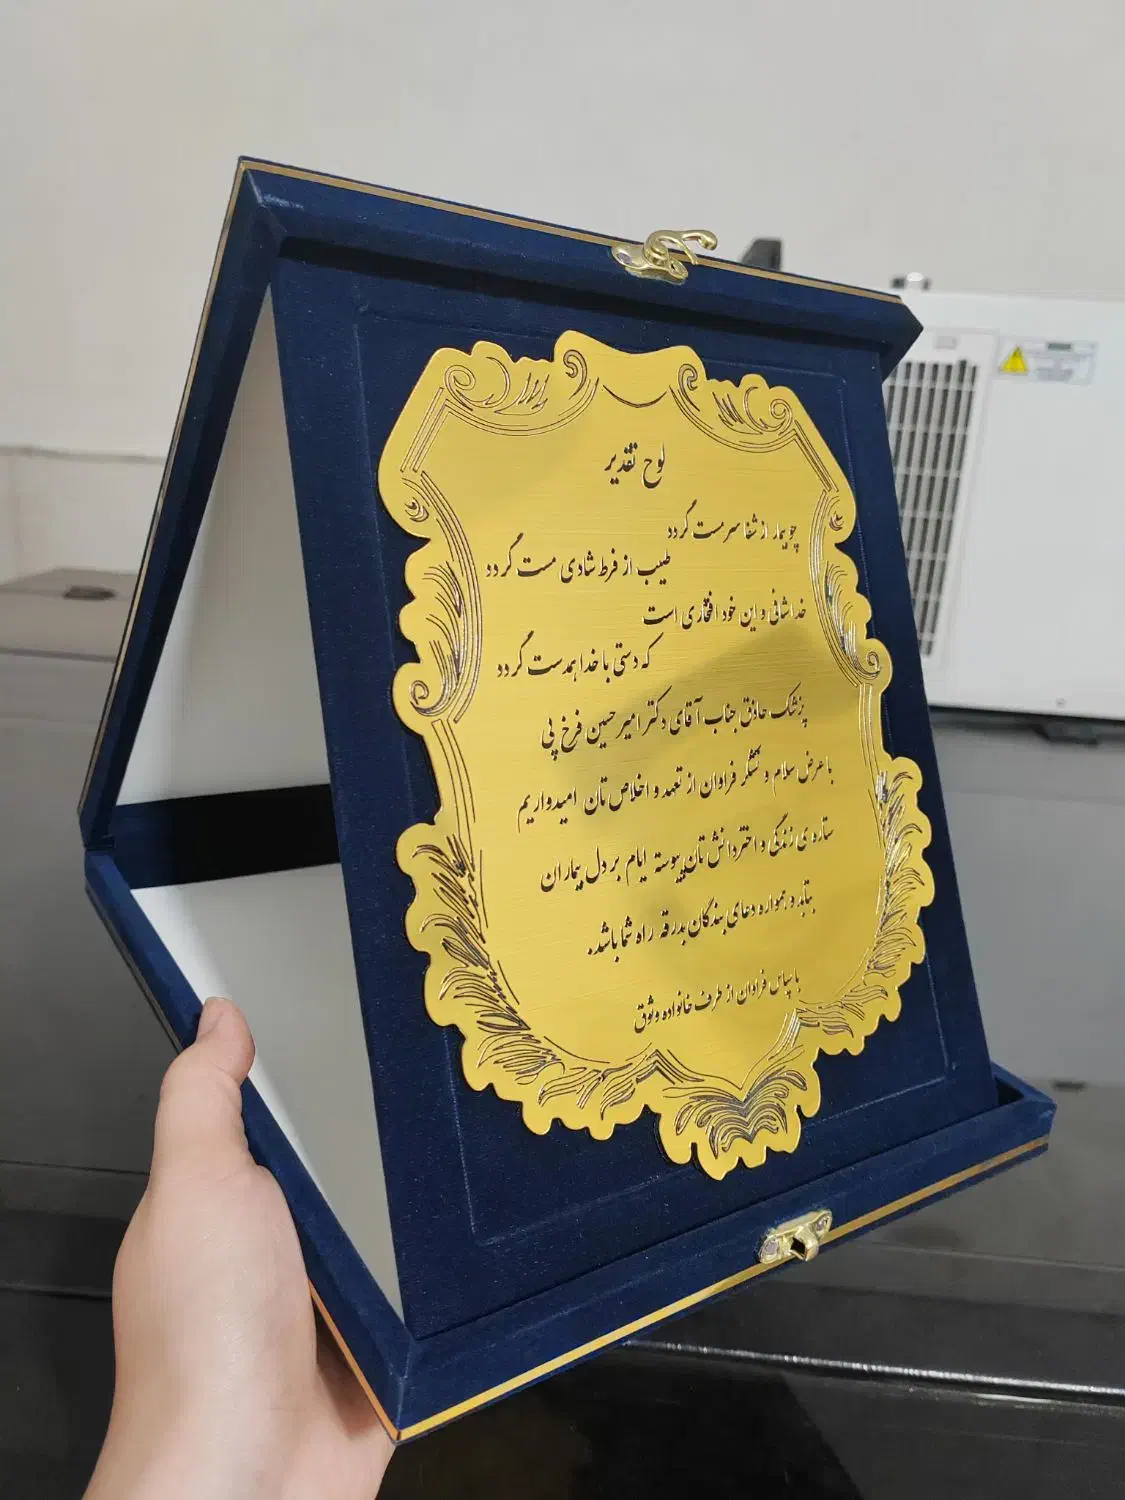 لوح تقدیر
چو بیمار از شفا سرمست گردد
طبیب از فرط شادی مست گردد
خدا شافی و این خود افتخاری است
که دستی با خدا همدست گردد
پزشک حاذق جناب آقای دکتر امیرحسین فرخ پی
با عرض سلام و تشکر فراوان از تعهد و اخلاص تان امیدواریم
ستاره ی زندگی و اختر دانش تان پیوسته ایام بر دل بیماران
بتابد و همواره دعای بندگان بدرقه راه شما باشد.
با سپاس فراوان از طرف خانواده وثوق